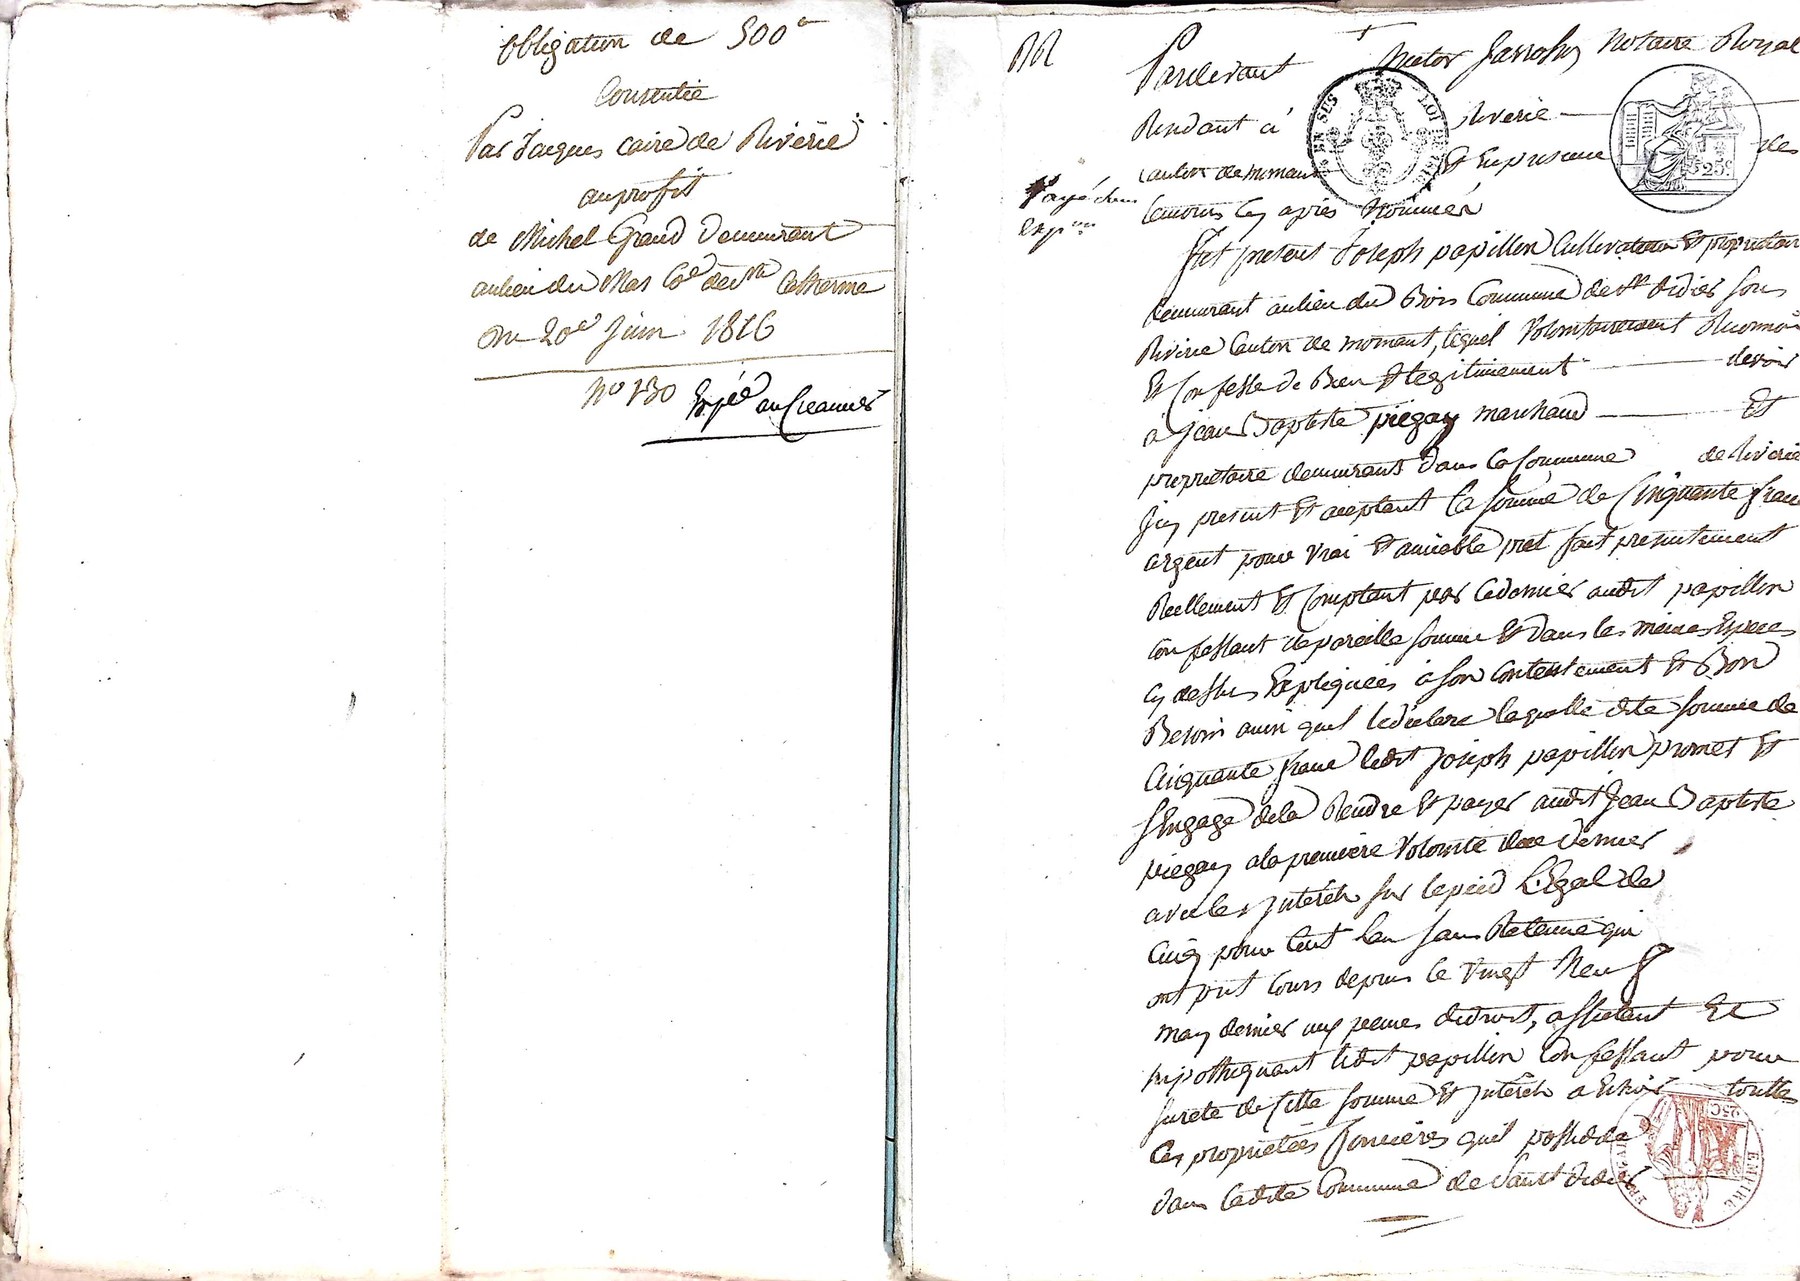 obligation de 500 f
Consentie
Par Jacques caire de Riverie
au profit
de Michel Grand Demeurant
au lieu du Mas Cne de Ste Catherine
Du 20e Juin 1816
No 130 Expée au Creancier
Pardevant Victor Notaire Royal
Residant à Riverie
canton de mornant Et En presence des
temoins Cy après Nommés
Payé
Exp.on
fut present Joseph papillon Cultivateur Et proprietaire
demeurant au lieu du Bois Commune de St Didier sous
Riverie Canton de mornant, lequel Volontairement Reconnoit
Et Confesse de Bien Et légitimement devoir
à Jean Baptiste piegay marchand Et
proprietaire demeurant dans la Commune de Riverie
Icy present Et acceptant la somme de Cinquante franc
argent pour vrai Et amiable pret fait presentement
Reellement Et Comptant par ce dernier audit papillon
Confessant de pareille somme Et dans les mêmes Especes
Cy dessus Expliquées à son contentement Et Bon
Besoin ainsi quil le déclare laquelle dite somme de
Cinquante franc ledit Joseph papillon promet Et
sEngage de la Rendre Et payer audit Jean Baptiste
piegay a la premiere Volonté de ce dernier
avec les Interêts sur le pied Légal de
Cinq pour Cent lan sans Retenue qui
ont prit Cours depuis le Vingt Neuf
may dernier aux peines de droit, affectant Et
hipothequant ledit papillon Confessant pour
sureté de Cette somme Et Interêts a Echoir toutes
les proprietées foncières quil possede
dans ladite Commune de Saint Didier
EN SES LOI
25c.
25C
EMPIRE